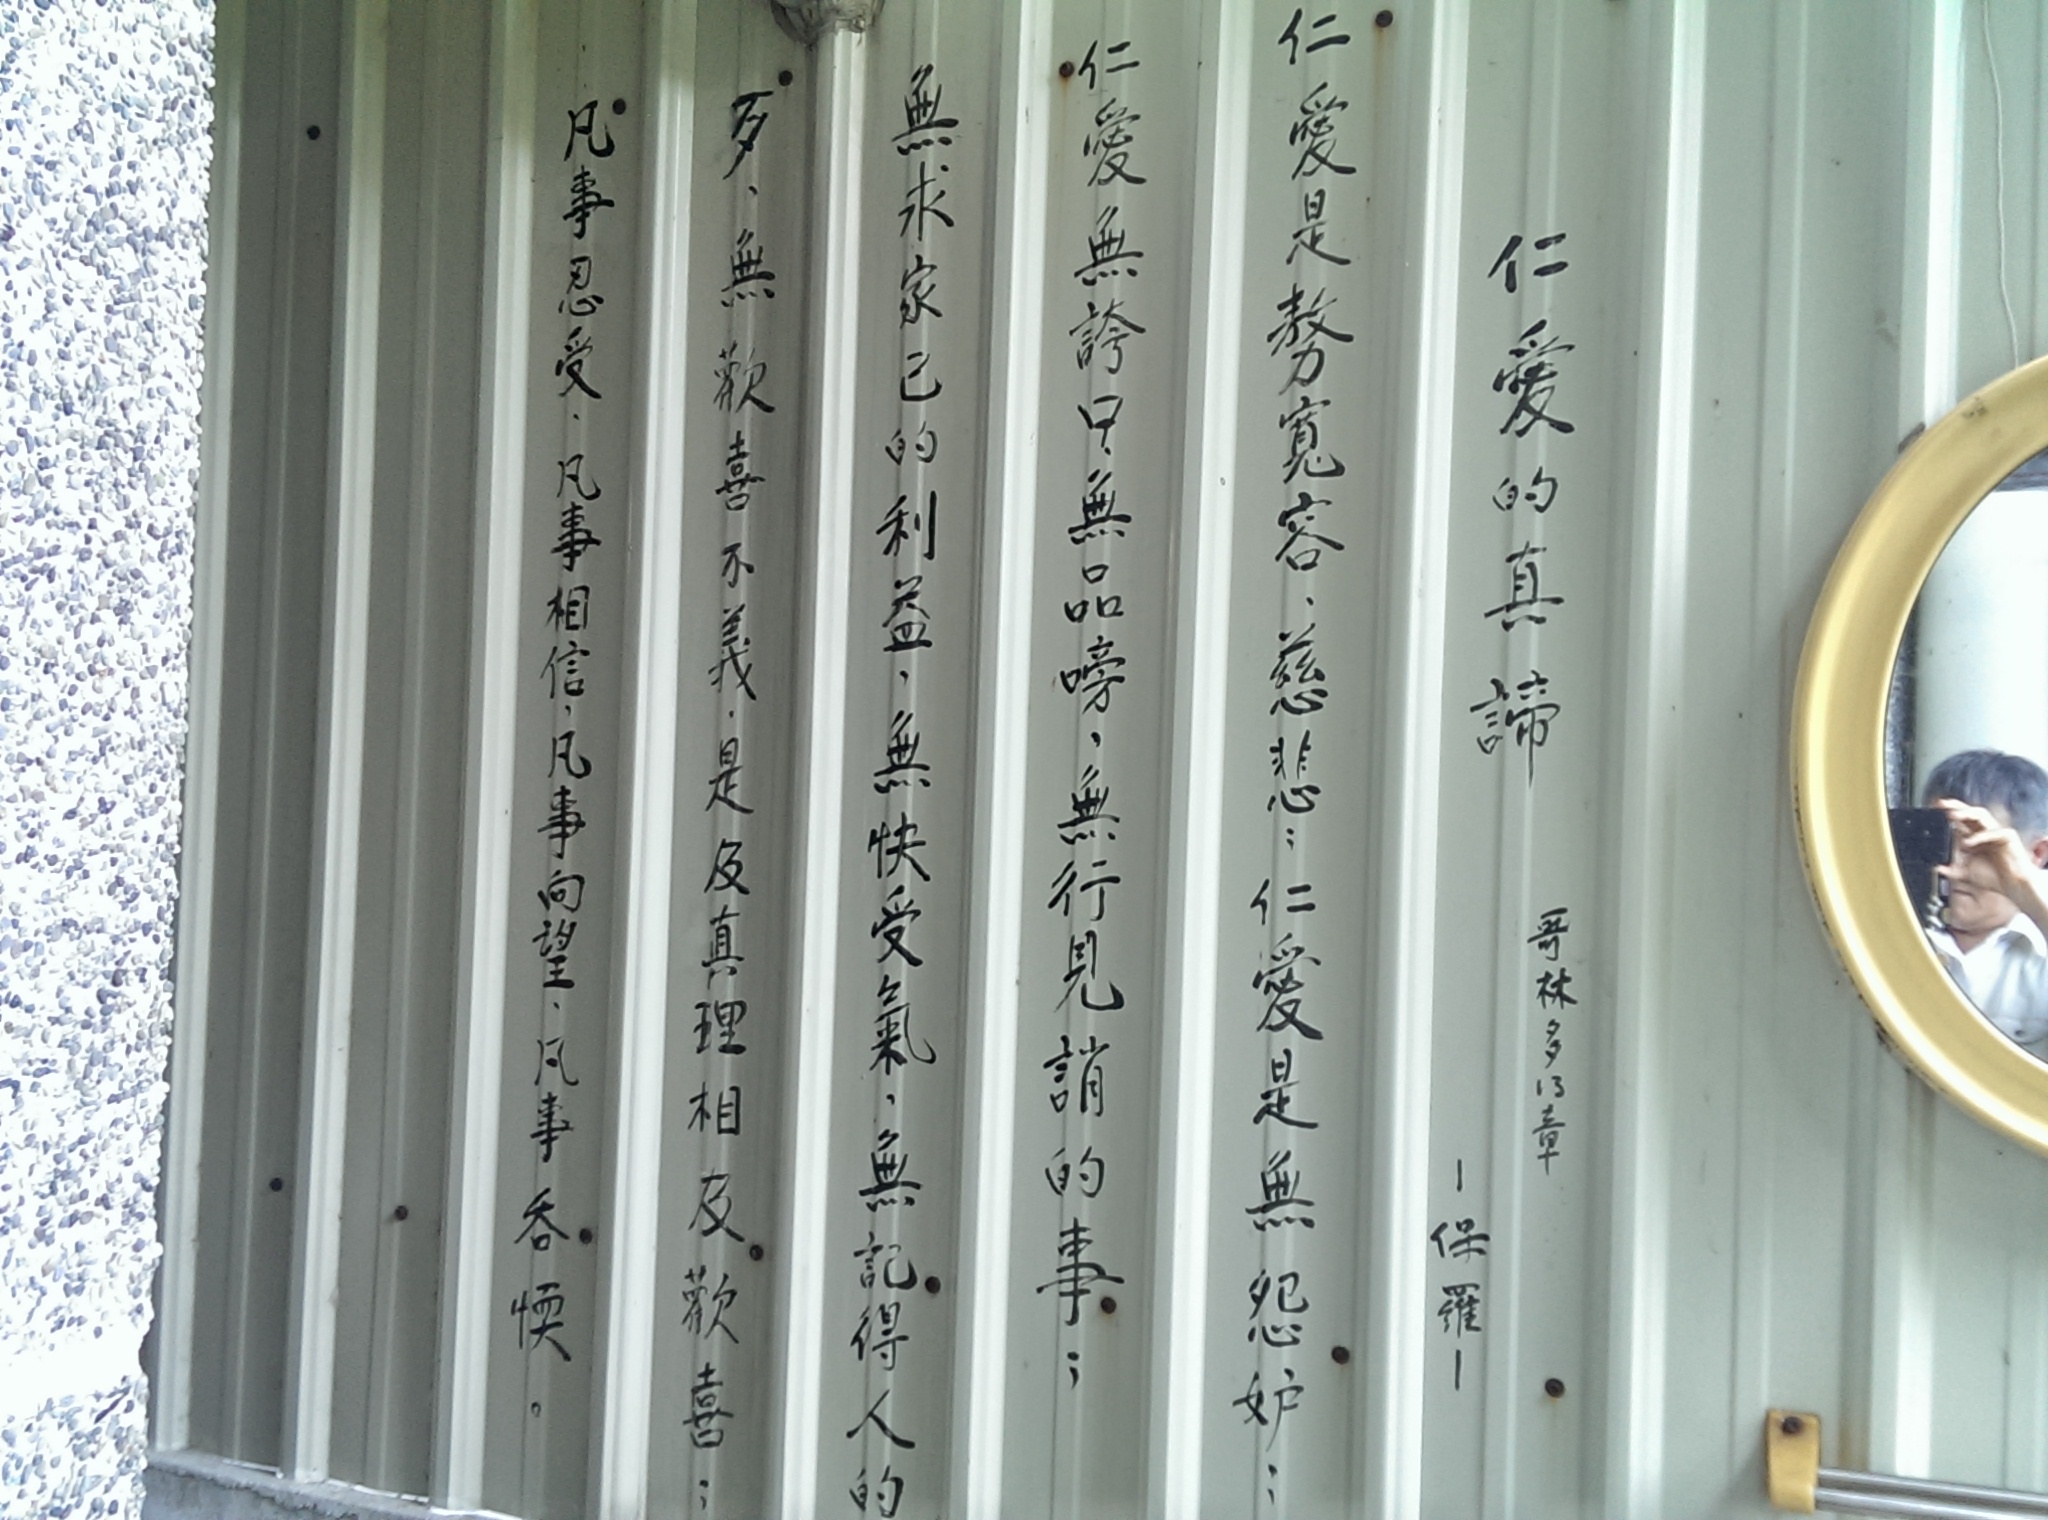 仁愛的真諦
哥林多13章
—保羅—
仁愛是勢寬容、慈悲；仁愛是無怨妒；
仁愛無誇口、無品嗙、無行見誚的事；
無求家己的利益、無快受氣、無記得人的
歹、無歡喜不義、是及真理相及歡喜；
凡事忍受、凡事相信、凡事向望、凡事吞忍。